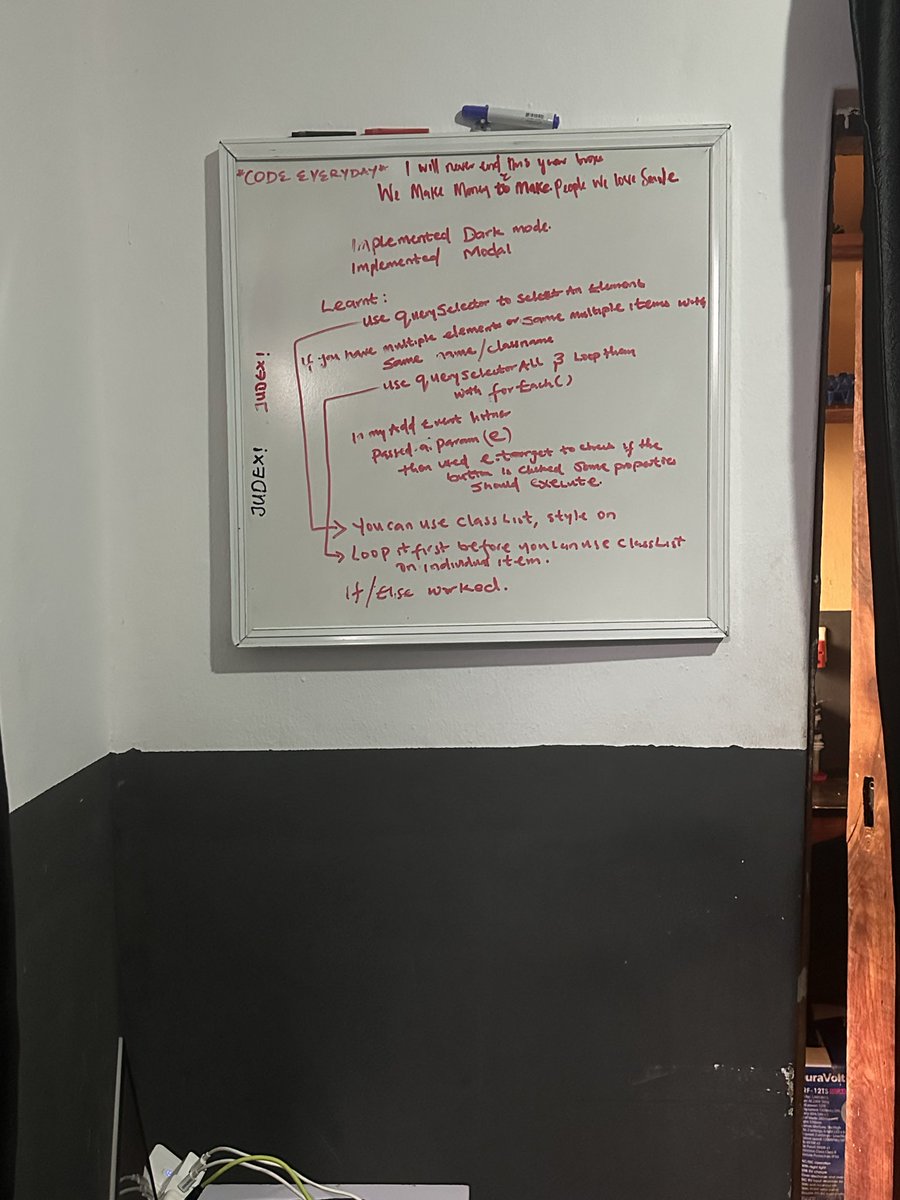 *CODE EVERYDAY* I will never end this year broke
We Make Money to Make People We love Smile
Implemented Dark mode.
Implemented Modal
Learnt:
Use QuerySelector to select An Element
If you have multiple elements or same multiple items with
same name/classname
Use QuerySelectorAll & Loop them
with forEach()
In my Add Event
Passed a param (e)
then used e.target to check if the
button is clicked some properties
should execute.
You can use ClassList, style on
Loop it first before you can use ClassList
on individual item.
If/Else worked.
JUDEX!
JUDEX!
uraVolt
RF-12TS